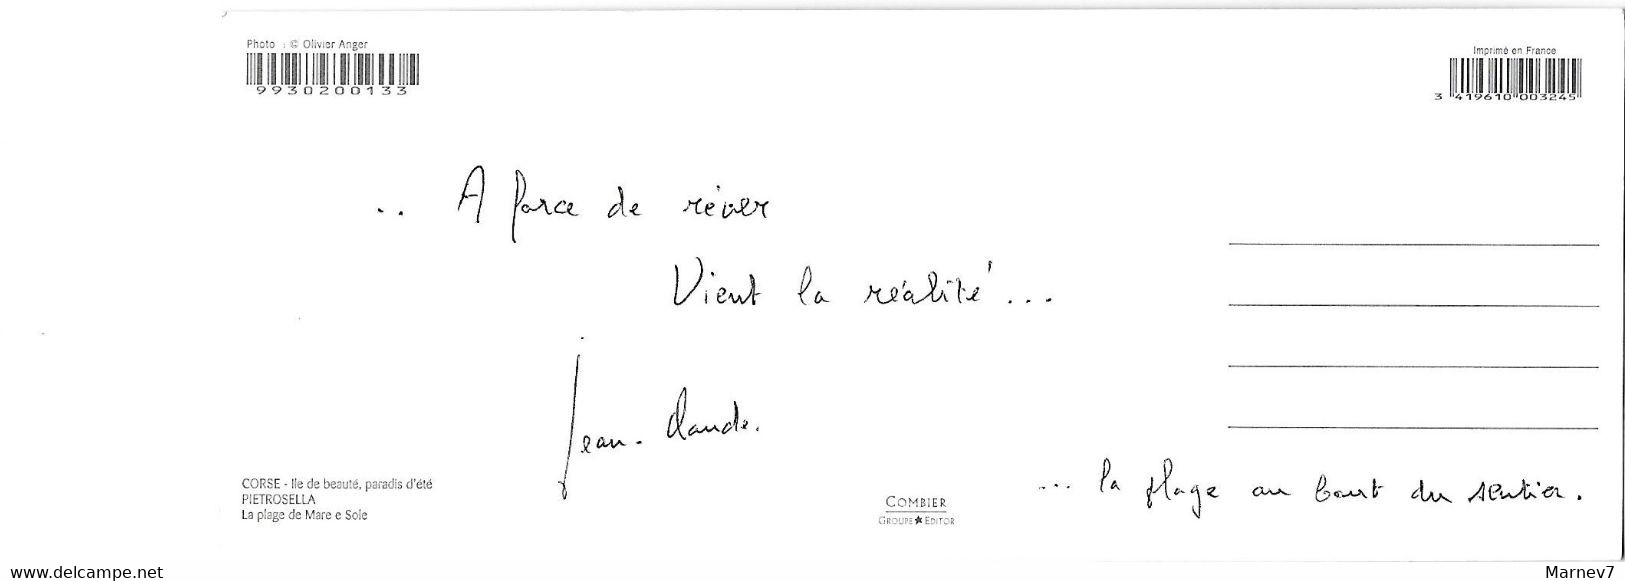 Photo : © Olivier Anger
9930200133
Imprimé en France
3 419610 003245
.. A force de rêver
Vient la réalité...
Jean-Claude.
... la plage au bout du sentier.
CORSE - Ile de beauté, paradis d'été
PIETROSELLA
La plage de Mare e Sole
COMBIER
GROUPE ★ EDITOR
www.delcampe.net
Marnev7